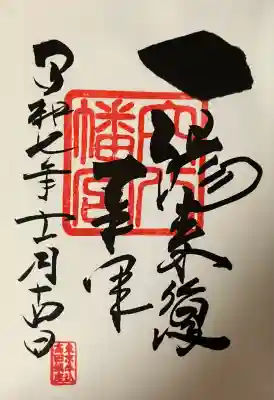 一陽来復
穴八
幡宮
令和七年十二月十四日